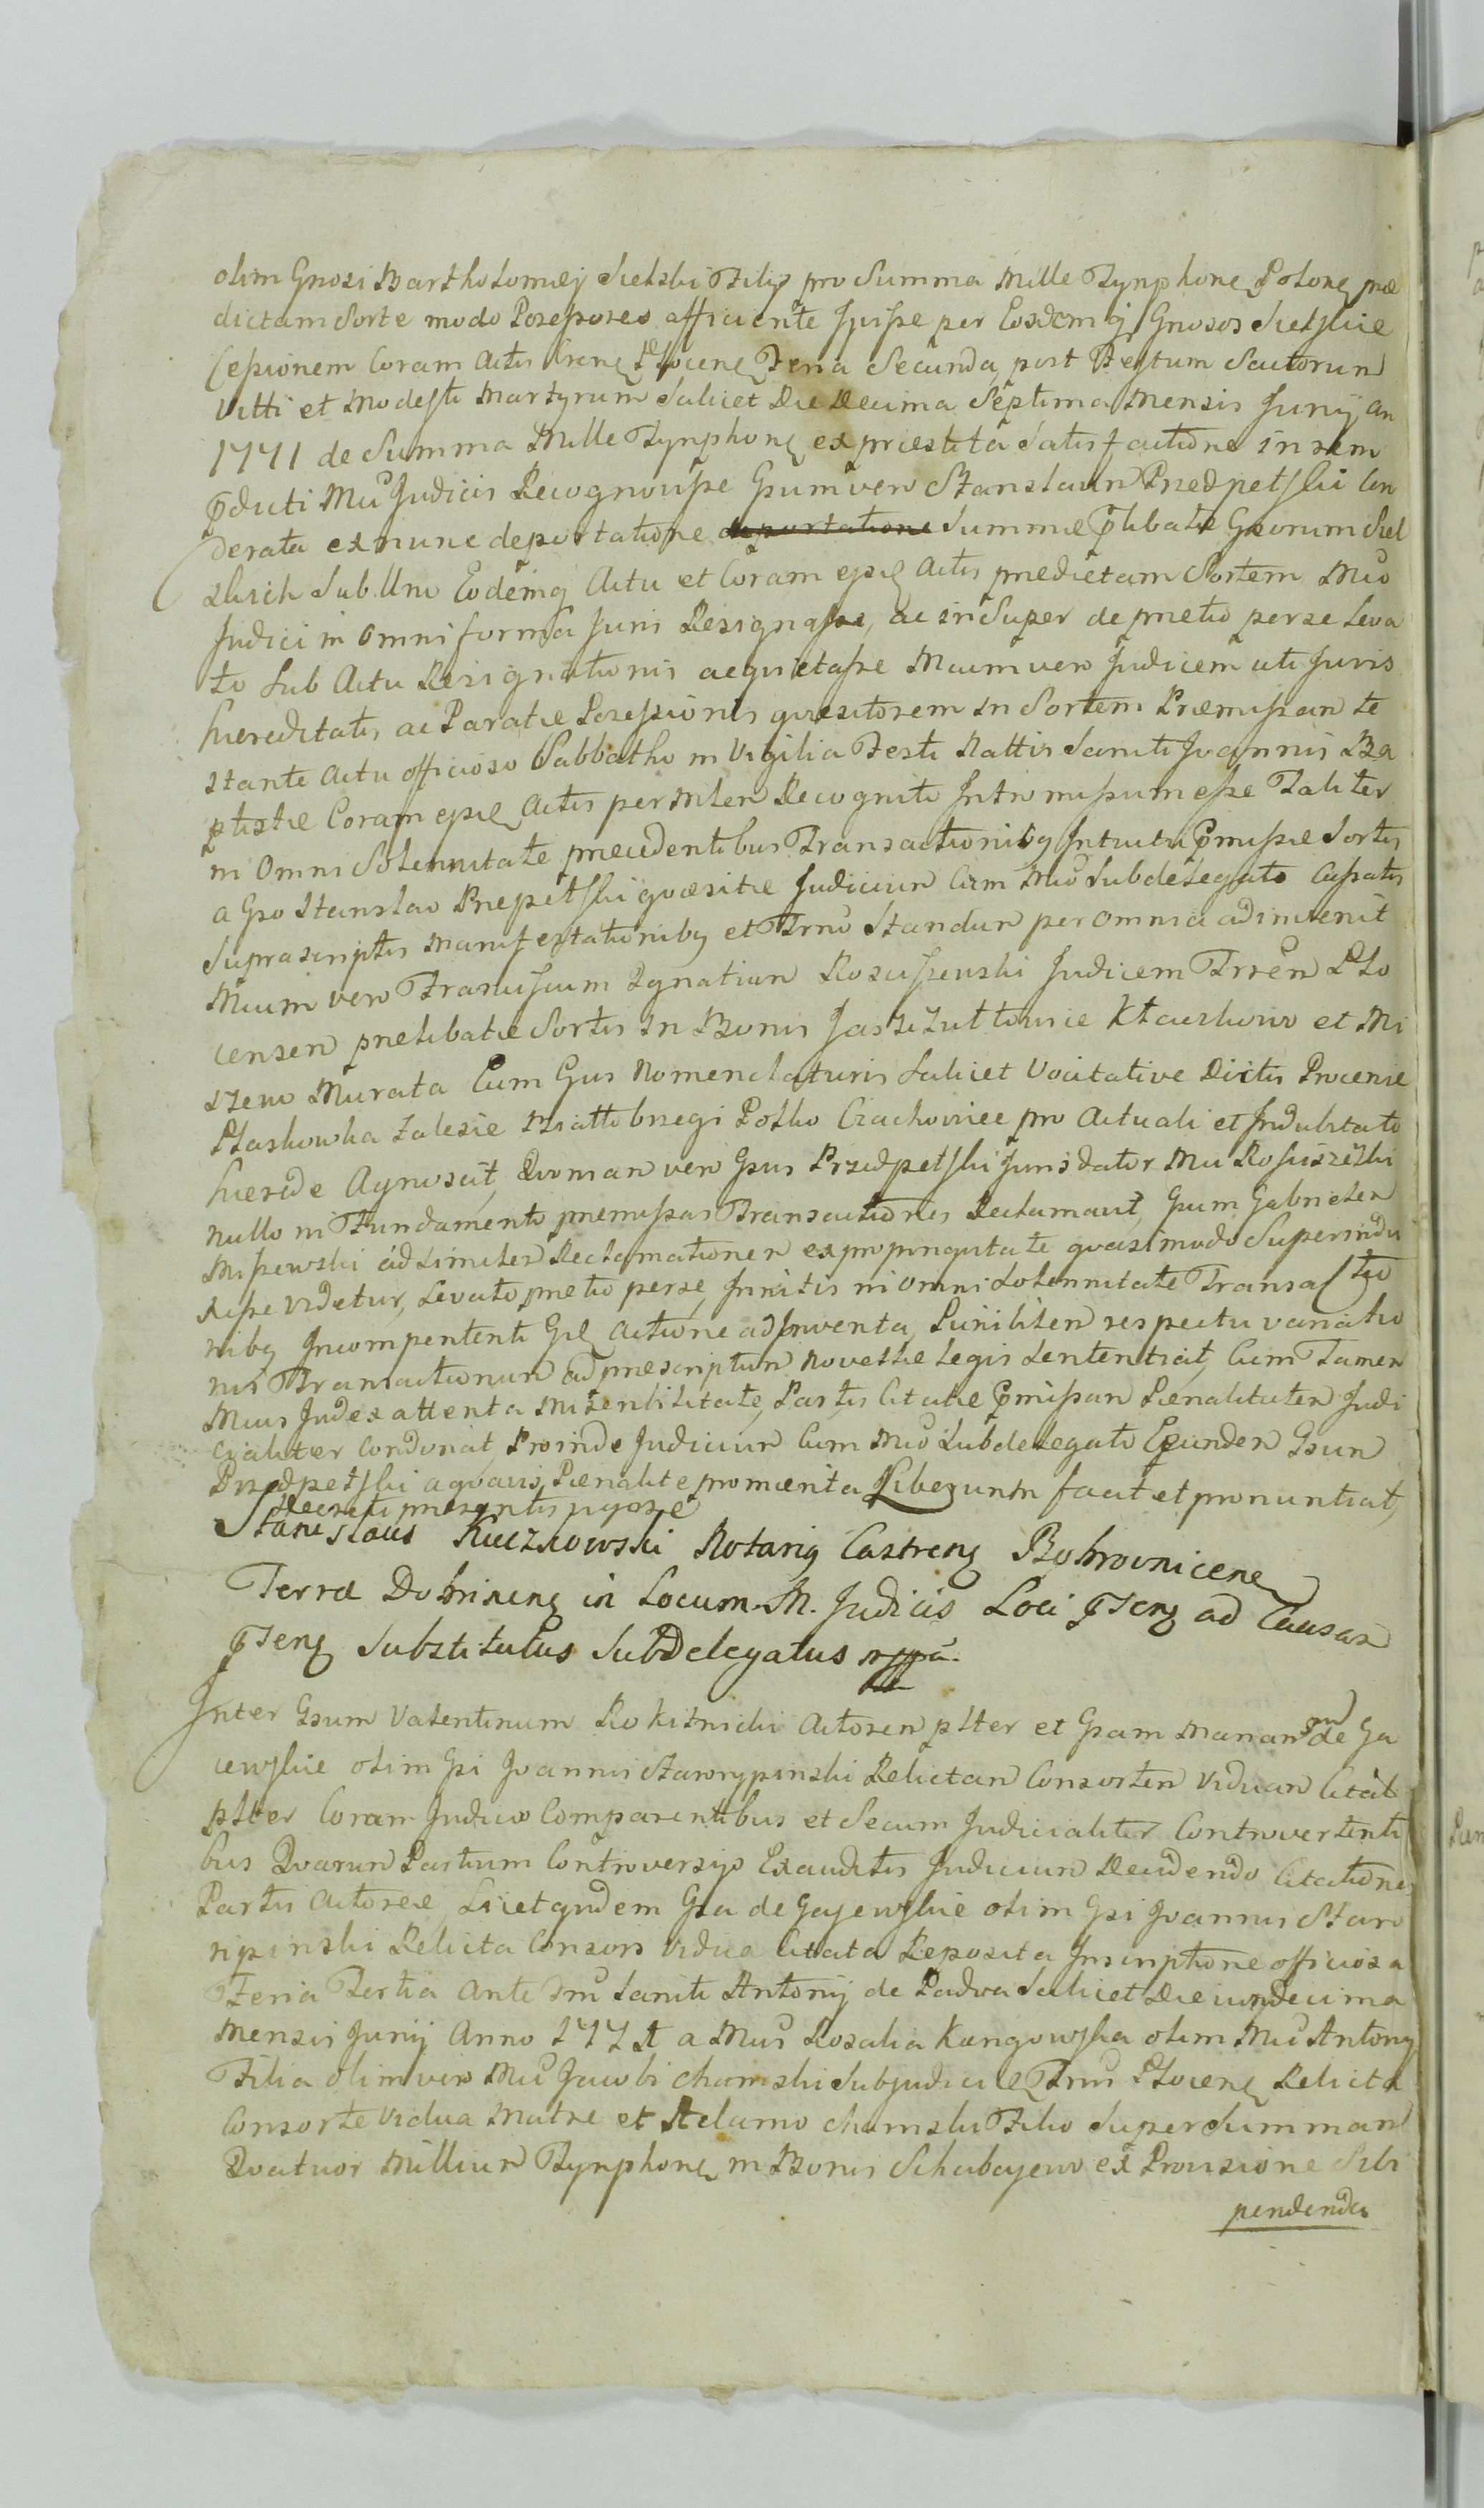 olim Gnosi Bartholomæj Sielski Filijs pro Summa Mille Tynphonę Polonę præ
dictam Sorte modo Possessores afficiente fuisse per Eosdemq Gnosos Sielskie
Cessionem Coram Actis Crenę Plocenę Feria Secunda post Festum Sanctorum
Vitti et Modesti Martyrum Scilicet Die Decima Septima Mensis Junij An
1771 de Summa Mille Tynphonę ex præstita Satisfactione in rem
pducti Mci Judicis Recognovisse Gsum vero Stanislaum Przedpełski Con
derata ex nunc deportatione deportatione Summæ plibatæ Gsorum Siel
skich Sub Uno Eodemq Actu et Coram ejsdę Actis prædictam Sortem Mco
Judici in Omni forma Juri Resignasse, ac in Super de pretio per se leva
to Sub Actu Resignationis acquietasse Mcum vero Judicem uti Juris
hæreditatis, ac Paratæ Possessionis quæsitorem in Sortem Præmissam te
stante Actu officioso Sabbatho in Vigilia Festi Nattis Sancti Joannis Ba
ptistæ Coram ejsdę Actis per Mlen Recogniti Intromissum esse Taliter
in Omni Solennitate præcedentibus Transactionibq Intuitu pmissæ Sortis
a Gso Stanslao Przepełski quæsitæ Judicium Cum Mco Subdelegato Cassatis
Suprascriptis Manifestationibq et Trmo Standum per omnia adinvenit
Mcum vero Franciscum Ignatium Rosciszewski Judicem Trren Plo
censen prælibatæ Sortis in Bonis Jastrzultowice Kłaczkowo et Mi
szewo Murata Cum Gus Nomenclaturis Scilicet Vocitative Dictis Procenie
Ptaskowka Zalesie Białłobrzegi Polko Czachowiec pro Actuali et Indubitato
hærede Agnoscit, Qvoniam vero Gsus Przedpełski Jurisdator Mci Rosciszewski
Nullo in Fundamento præmissas Transactiones Reclamavit, Gsum Gabrielen
Miszewski ad Similen Reclamationen ex propinquitate quasimodo Superindu
xisse Videtur, Levato pretio per se, Innitis in Omni Solennitate Transactio
nibq Incompetenti Gsę Actione adInventa, Similiten respectu variatio
nis Transactionum ad præscriptum Novellæ Legis Sententiat, Cum Tamen
Mcus Judex attenta Miserabilitate, Partis Citatæ pmissam Pænalitaten Judi
cialiter Condonat, Proinde Judicium Cum Mco Subdelegato Eunden Gsum
Przedpełski a quavis Pænalite promærita Liberum facit et pronuntiat,
Decreti præsentis vigore
Stanislaus Kuczkowski Notariq Castrenę Bobrownicenę
Terræ Dobrinenę in Locum M. Judicis Loci pTenę ad Causas
pTenę Substitutus Subdelegatus mppa
Inter Gsum Valentinum Rokitnicki Actoren pltter et Gsam Mariannam de Ga
iewskie olim Gsi Joannis Starorypinski Relictam Consorten Viduam Citat
pltter Coram Judicio Comparentibus et Secum Judicialiter Controvertenti
bus Qvarum Partium Controversijs Exauditis Judicium Decidendo Citationes
Partis Actoreæ, Licet qvdem Gsa de Gajewskie olim Gsi Joannis Staro
ripinski Relicta Consors Vidua Citata Reposita Inscriptione officiosa
Feria Tertia Ante Fm Sancti Antonij de Padva Scilicet Die undecima
Mensis Junij Anno 177 a Mcis Rosalia Kęmpowska olim Mci Antonij
Filia olim vero Mci Jacobi Chamski Subjudicis Trrus Plocenę Relicta
Consorte Vidua Matre et Adamo Chamski Filio Super Summam
Qvatuor Millium Tynphonę in Bonis Schabajewo ex Provisione Sibi
pendenda